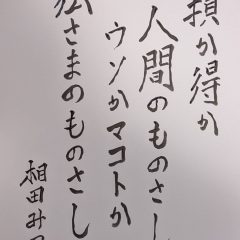 損か得か
人間のものさし
ウソかマコトか
仏さまのものさし
相田み